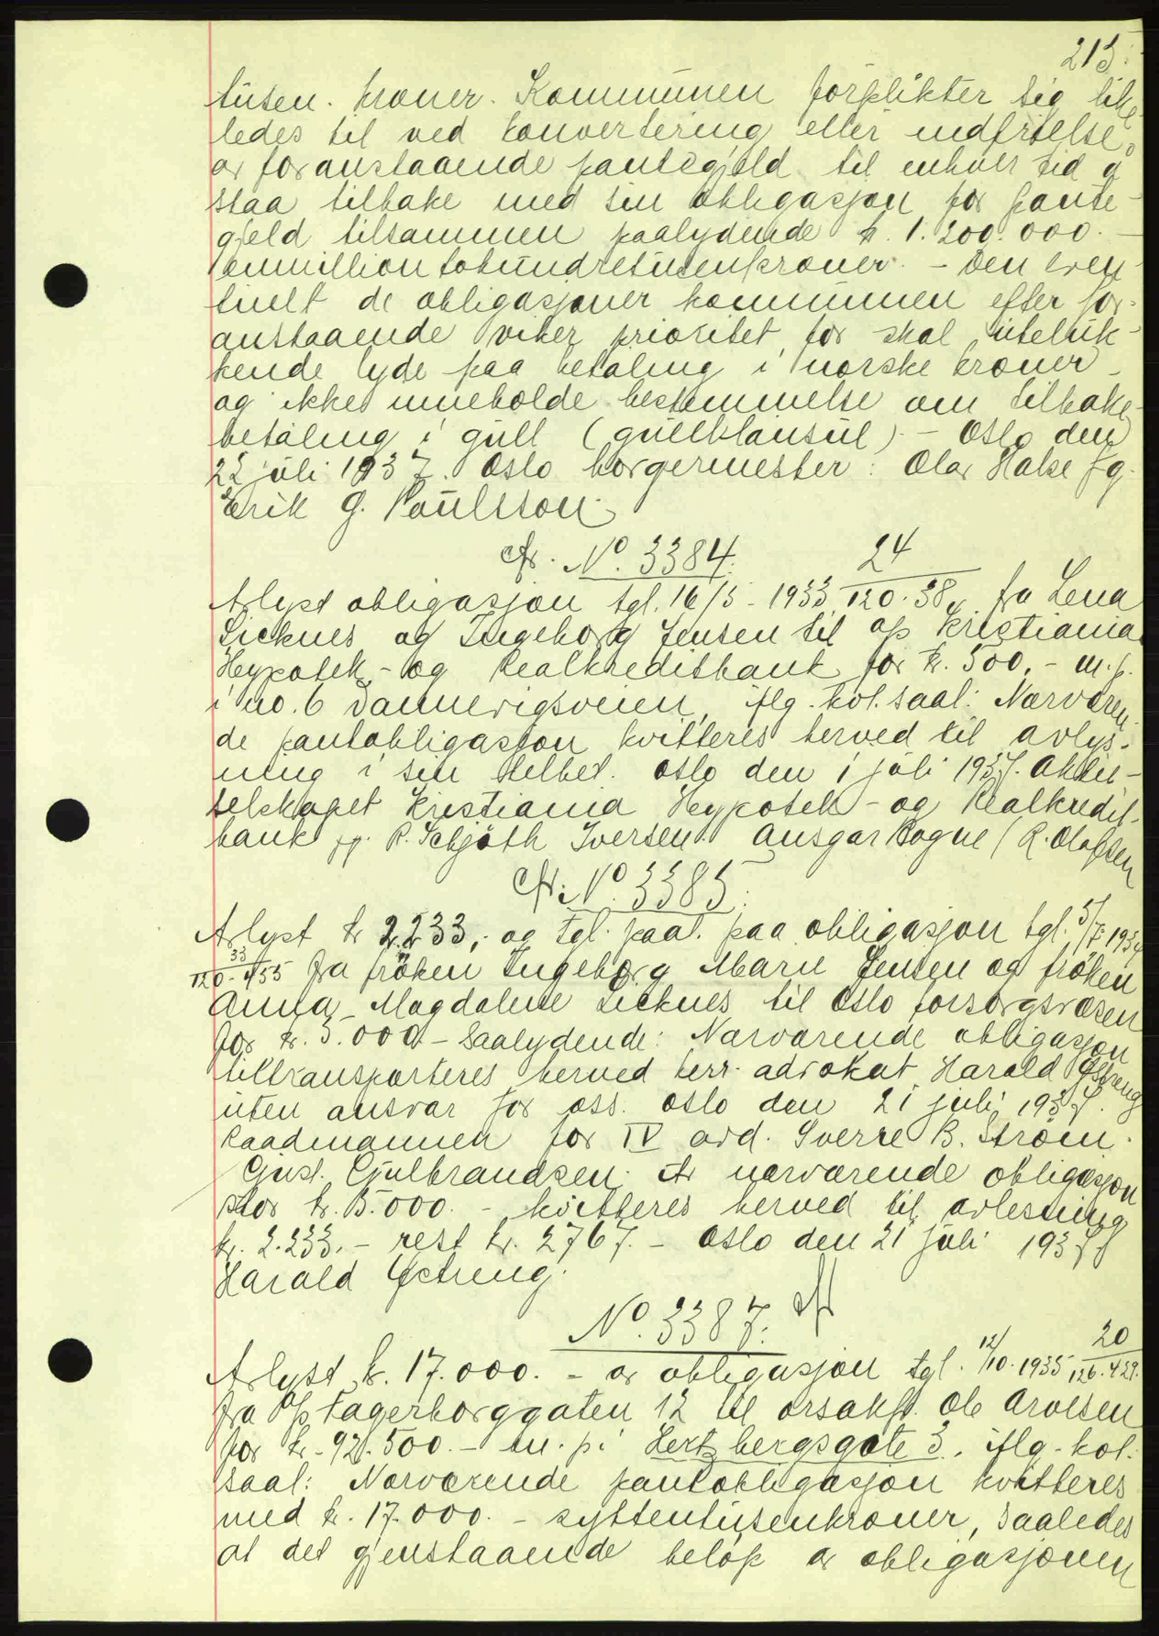 215.
tusen. kroner. Kommunen forplikter sig like
ledes til ved konvertering eller indfrielse
av foranstaaende pantegjeld til enhver tid å
staa tilbake med sin obligasjon for pante-
gjeld tilsammen paalydende kr. 1.200.000.-
enmilliontohundretusenkroner. - Den even-
tuelt de obligasjoner kommunen efter for-
anstaaende viker prioritet for skal uteluk-
kende lyde paa betaling i norske kroner
og ikke inneholde bestemmelse om tilbake-
betaling i gull (gullklausul) - Oslo den
22 juli 1937. Oslo borgermester: Olav Hakse fg.
Erik G. Paulsson.
Av. No. 3384. 24
Avlyst obligasjon tgl. 16/5 - 1933 120.38, fra Lena
Sicknes og Ingeborg Jensen til A/S Kristiania
Hypotek- og Realkreditbank for kr. 500,- m.p.
i no. 6 Dannevigsveien, iflg. kvl. saal: Nærværen-
de pantobligasjon kvitteres herved til avlys-
ning i sin helhet. Oslo den 1 juli 1937. Aktie-
selskapet Kristiania Hypotek- og Realkredit-
bank pp. R. Schjöth Iversen. Ansgar Bogne / R. Olafsen
Av. No. 3385.
Avlyst kr 2.233,- og tgl. paat. paa obligasjon tgl. 5/7 1934
33
120.455 fra frøken Ingeborg Marie Jensen og frøken
Anna Magdalene Sicknes til Oslo forsorgsvæsen
for kr. 5.000.- Saalydende: Nærværende obligasjon
tiltransporteres herved herr advokat Harald Østreng
uten ansvar for oss. Oslo den 21 juli 1937.
Raadmannen for IV avd. Sverre B. Strøm.
Gust. Gulbrandsen. Av nærværende obligasjon
stor kr. 5.000.- kvitteres herved til avlesning
kr. 2.233.- rest kr. 2767.- Oslo den 21 juli 1937
Harald Østreng.
No. 3387. Av
Avlyst kr. 17.000.- av obligasjon tgl. 12/10.1935 20 126.429.
fra A/S Fagerborggaten 12 til orsakf. Ole Arvesen
for kr. 92.500.- m.p.i Hertzbergsgate 3. iflg. kvl.
saal: Nærværende pantobligasjon kvitteres
med kr. 17.000.- syttentusenkroner, saaledes
at det gjenstaaende beløp av obligasjonen